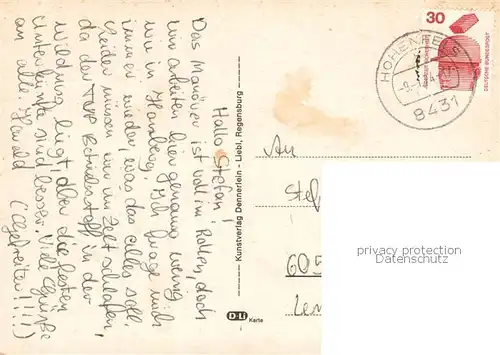 Hallo Stefan!
Das Manöver ist voll im Rollen, doch
wir arbeiten hier genauso wenig
wie in Hamberg. Ich frage mich
immer wieder, was das alles soll.
Leider müssen wir im Zelt schlafen,
da der Betriebsstoff in der
Wildnung liegt, aber die festen
Unterkünfte sind besser. Viele Grüße
an alle. Harald (Gefreiter!!!!)
Kunstverlag Dennerlein - Liebl, Regensburg
D·Li Karte
30
DEUTSCHE BUNDESPOST
HOHENFELS
8431
An
Stef
605
privacy protection
Datenschutz